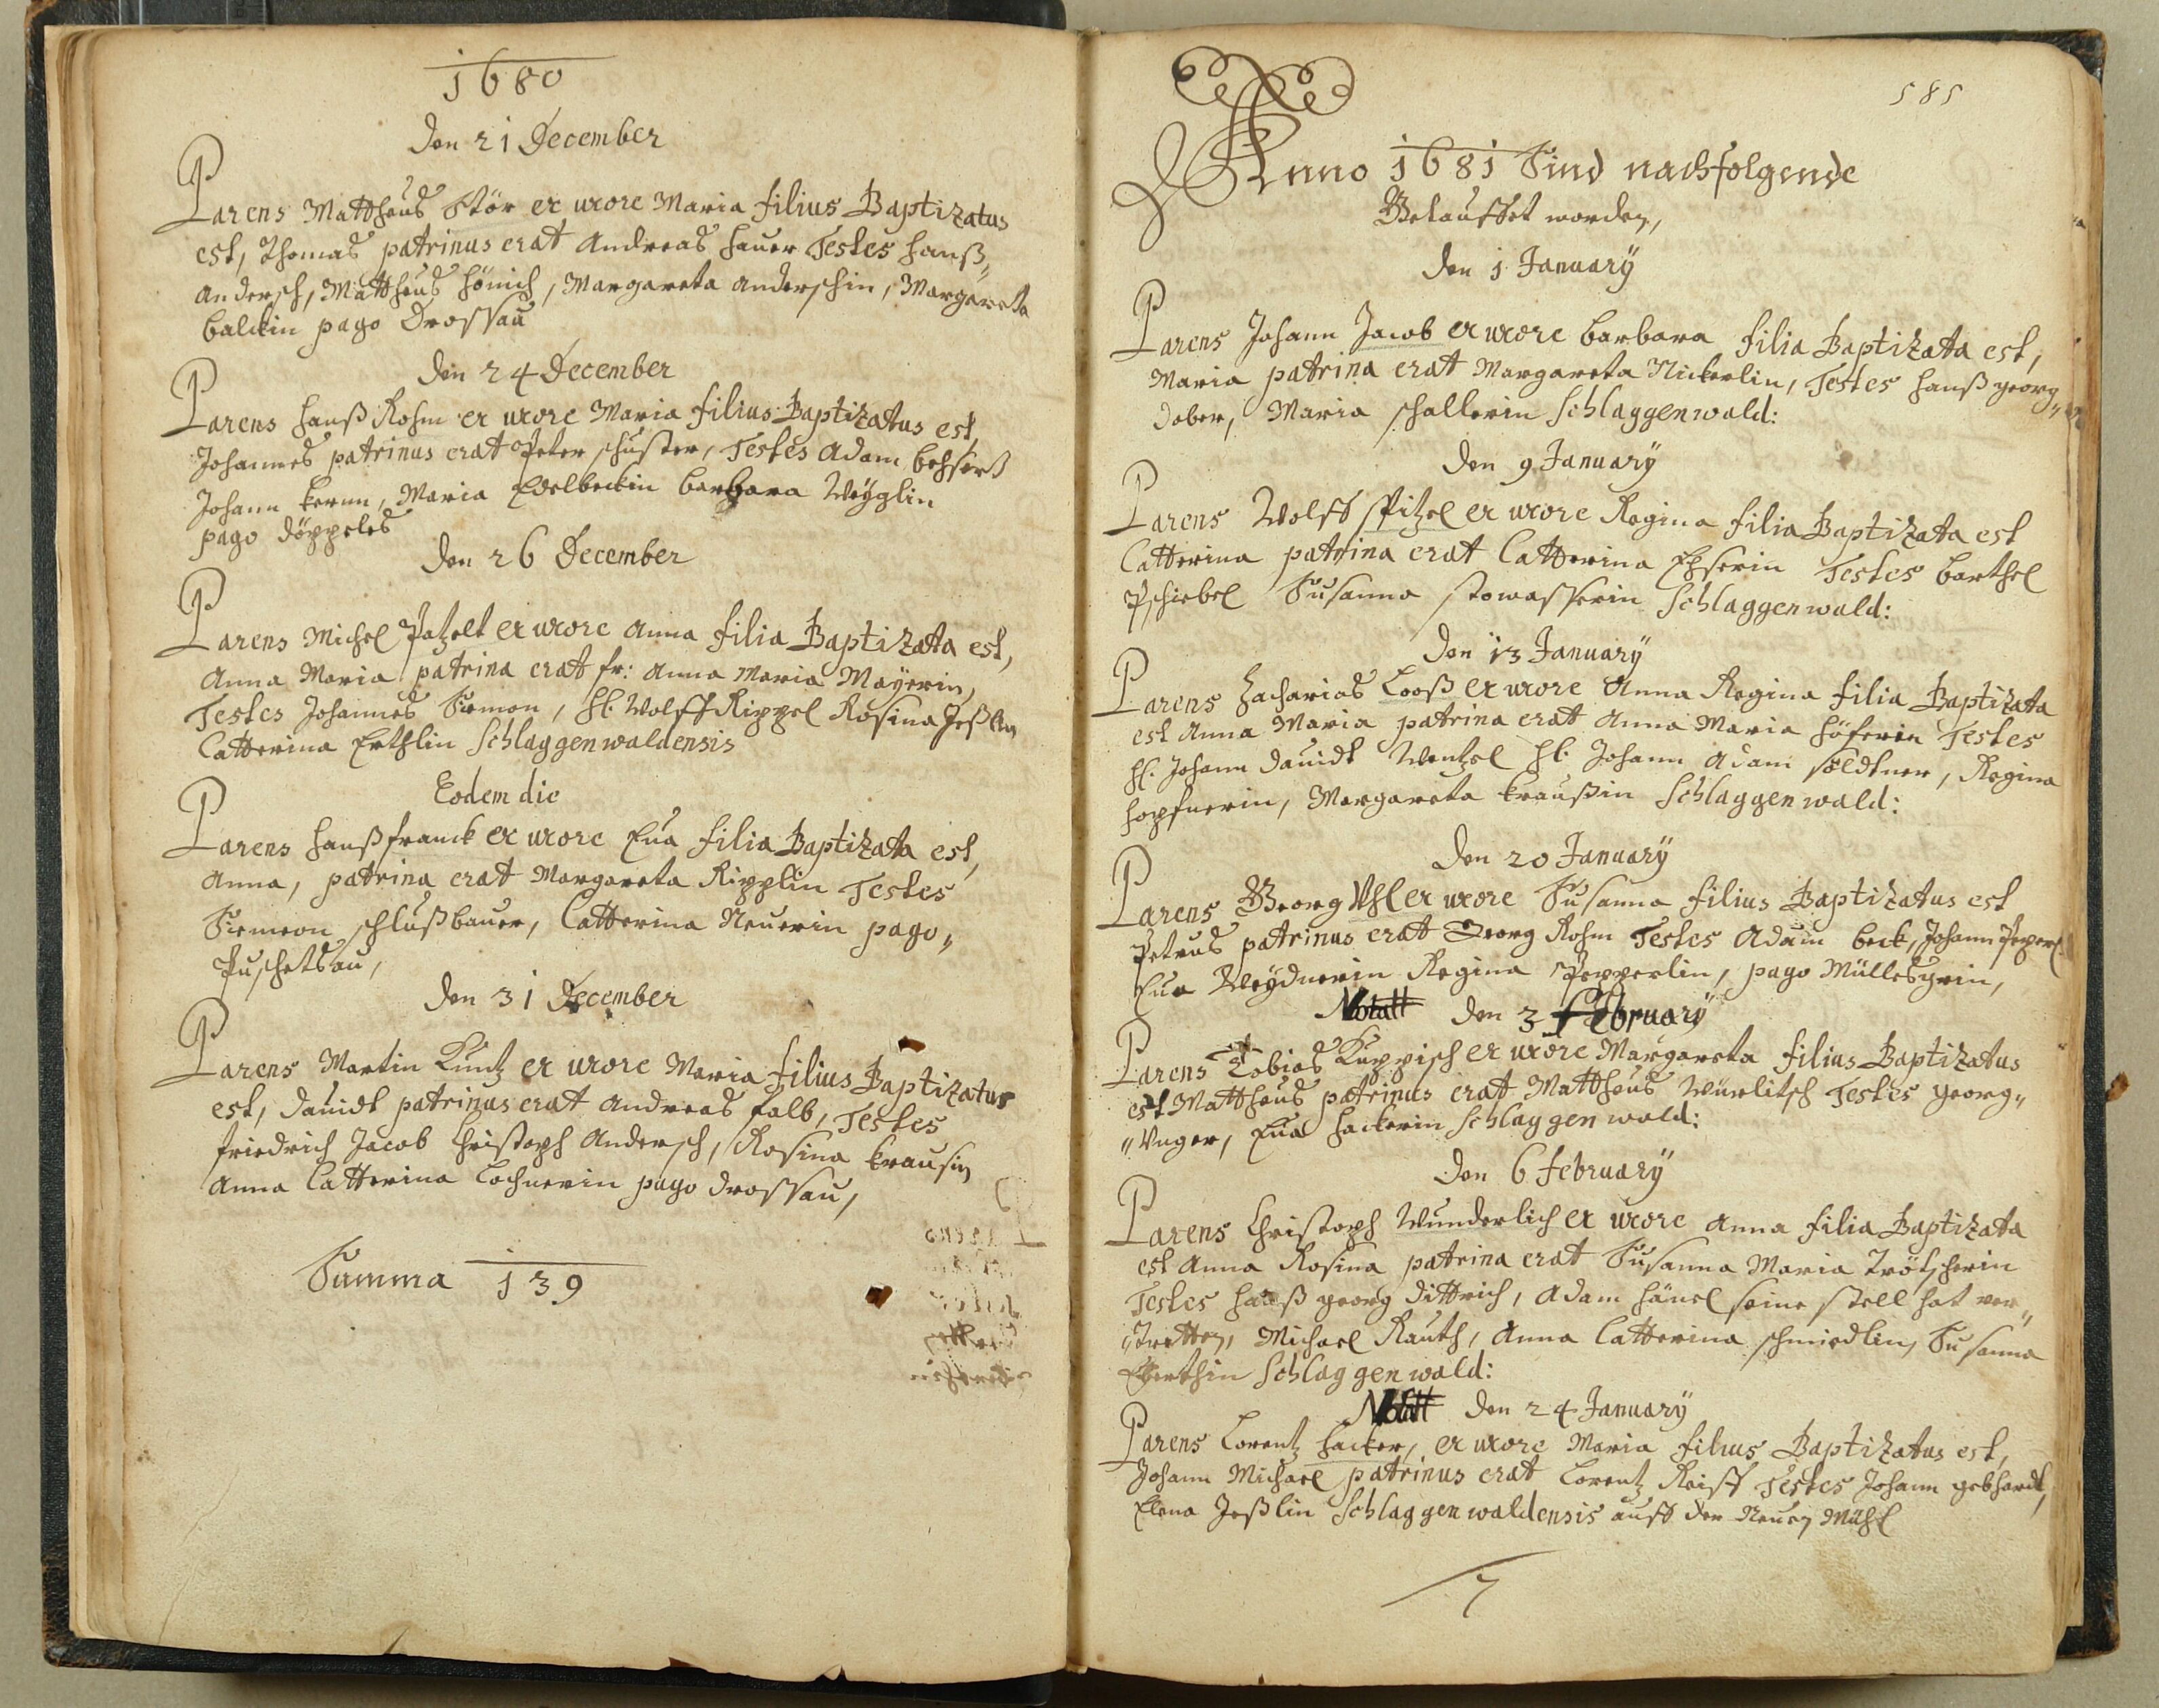 1680
Den 21 December
Parens Mattheus Stör ex uxore Maria filius Baptizatus
est, Thomas patrinus erat Andreas Hauer Testes Hanß
Andersch, Mattheus Hönich, Margareta Anderschin, Margareta
Balckin pago Drossau
Den 24 December
Parens Hanß Rohm ex uxore Maria filius Baptizatus est,
Johannes patrinus erat Peter Schuster, Testes Adam
Johann Kermn, Maria Edelbeckin Barbara Weÿglin
pago Döppeles
Den 26 December
Parens Michel Patzelt ex uxore Anna filia Baptizata est,
Anna Maria patrina erat fr: Anna Maria Maÿerin,
Testes Johannes Simon, H: Wolff Rippel Rosina
Catterina Erthlin Schlaggenwaldensis
Eodem die
Parens Hanß Franck ex uxore Eua filia Baptizata est,
Anna, patrina erat Margareta Ripplin Testes
Simeon Schlußbauer, Catterina Neuerin pago„
Puschetsau,
Den 31 December
Parens Martin Kuntz ex uxore Maria filius Baptizatus
est, Dauidt patrinus erat Andreas Falb, Testes
Friedrich Jacob Christoph Andersch, Rosina Krausin
Anna Catterina Lochnerin pago Drossau,
Summa 139
585
Anno 1681 Sind nachfolgende
Getauffet worden,
Den 1 Januarÿ
Parens Johann Jacob ex uxore Barbara filia Baptizata est,
Maria patrina erat Margareta Nickerlin, Testes Hanß Georg„
Dober, Maria Schallerin Schlaggenwald:
Den 9 Januarÿ
Parens Wolff Spitzel ex uxore Regina filia Baptizata est
Catterina patrina erat Catterina Testes Barthel
Pschiebel Susanna Stowasserin Schlaggenwald:
Den 13 Januarÿ
Parens Zacharias Looß ex uxore Anna Regina filia Baptizata
est Anna Maria patrina erat Anna Maria Höferin Testes
H: Johann Dauidt Wentzel H: Johann Adam Söldtner, Regina
Hopfnerin, Margareta Kraußin Schlaggenwald:
Den 20 Januarÿ
Parens Georg Uhl ex uxore Susanna filius Baptizatus est
Petrus patrinus erat Georg Rohm Testes Adam Beck, Johann
Eua Weÿdnerin Regina Pepperlin, pago Müllesgrin,
Den 3 Februarÿ
Parens Tobias Kuppisch ex uxore Margareta filius Baptizatus
est Mattheus patrinus erat Mattheus Würlitsch Testes Georg„
„Unger, Eua Hackerin Schlaggenwald:
Den 6 Februarÿ
Parens Christoph Wunderlich ex uxore Anna filia Baptizata
est Anna Rosina patrina erat Susanna Maria Trötscherin
Testes Hanß Georg Dittrich, Adam Hänel seine Stell hat ver„
„tretten, Michael Rauth, Anna Catterina Schmiedlin, Susanna
Schlaggenwald:
Den 24 Januarÿ
Parens Lorentz Hacker, ex uxore Maria filius Baptizatus est,
Johann Michael patrinus erat Lorentz Reiff Testes Johann Gebhardt,
Elena Jeßlin Schlaggenwaldensis auff der Neuen Mühl